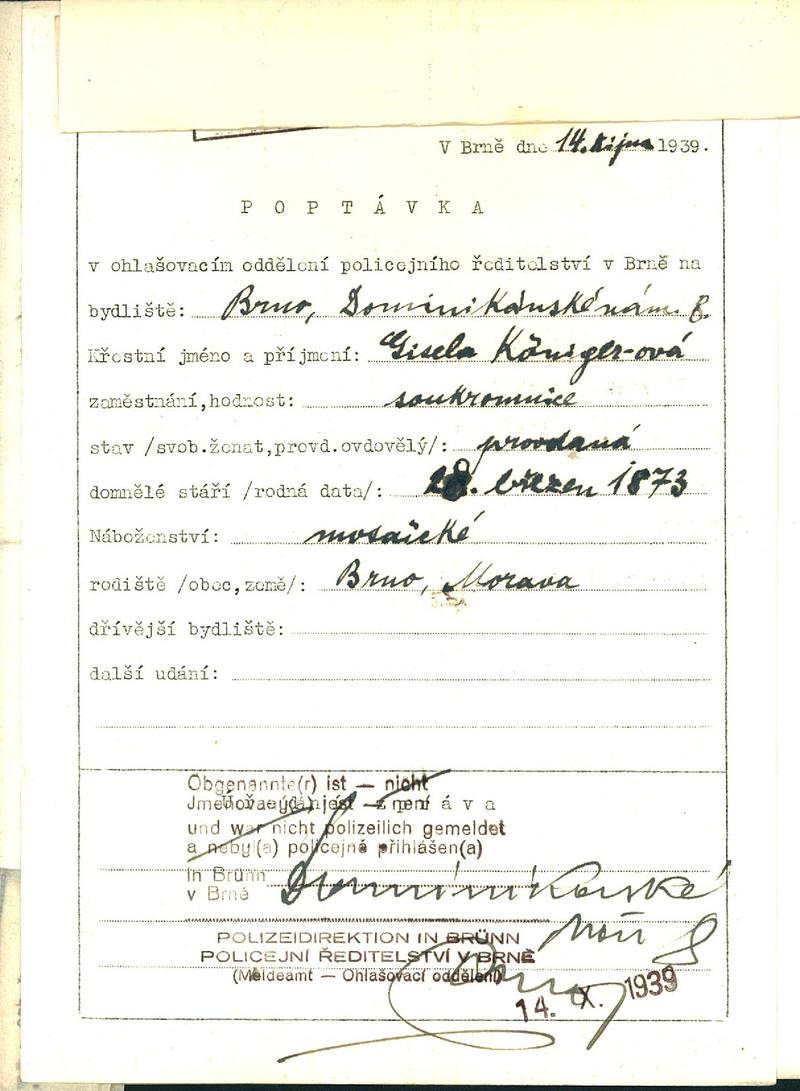 V Brně dne 14. října 1939.
POPTÁVKA
v ohlašovacím oddělení policejního ředitelství v Brně na
bydliště: Brno, Dominikánské nám. 8.
Křestní jméno a příjmení: Gisela Königer-ová
zaměstnání,hodnost: soukromnice
stav /svob.ženat,provd.ovdovělý/: provdaná
domnělé stáří /rodná data/: 28. březen 1873
Náboženství: mosaické
rodiště /obec,země/: Brno, Morava
dřívější bydliště:
další udání:
Obgenannte(r) ist — nicht
Jmenovaný(á) jest — není
Úřední zpráva
und war nicht polizeilich gemeldet
a nebyl(a) policejně přihlášen(a)
in Brünn
v Brně Dominikanské
nám 8
POLIZEIDIREKTION IN BRÜNN
POLICEJNÍ ŘEDITELSTVÍ V BRNĚ
(Meldeamt — Ohlašovací oddělení)
14. X. 1939